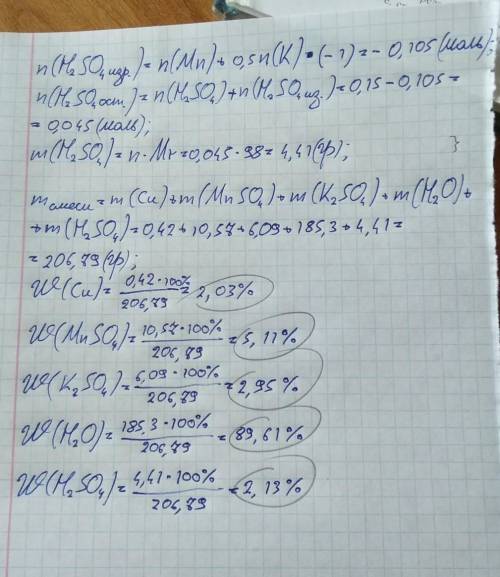 n(H₂SO₄ изр.)= n(Mn)+ 0,5n(K)•(-1)=- 0,105(моль);
n(H₂SO₄ ост.)= n(H₂SO₄)+n(H₂SO₄ из.)=0,15-0,105=
=0,045(моль);
m(H₂SO₄)= n· Mr=0,045·98=4,41(гр);
mсмеси= m(Cu)+m(MnSO₄)+m(K₂SO₄)+m(H₂O)+
+m(H₂SO₄)=0,42+10,57+6,09+185,3+4,41=
=206,79(гр);
W(Cu)= 0,42·100% / 206,79 = 2,03%
W(MnSO₄)= 10,57·100% / 206,79 = 5,11%
W(K₂SO₄)= 6,09·100% / 206,79 = 2,95%
W(H₂O)= 185,3·100% / 206,79 = 89,61%
W(H₂SO₄)= 4,41·100% / 206,79 = 2,13%